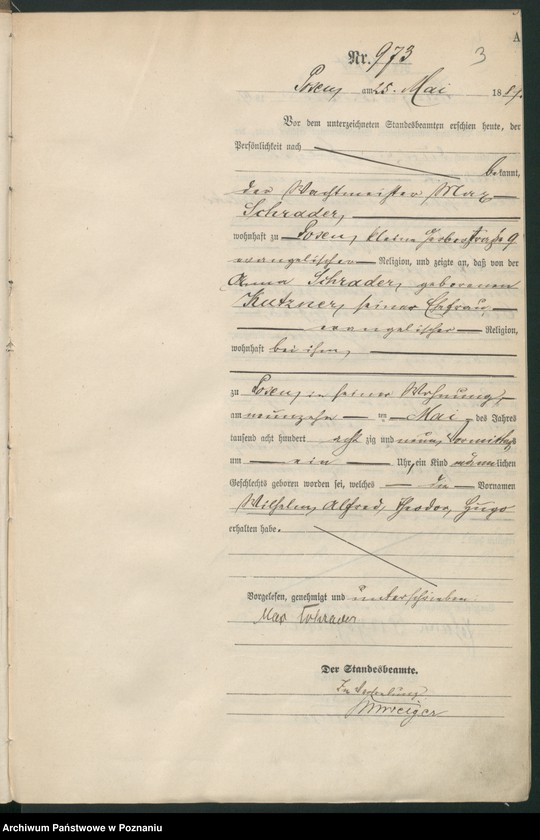 A
3
Nr. 973
Posen, am 25. Mai 1889.
Vor dem unterzeichneten Standesbeamten erschien heute, der
Persönlichkeit nach
bekannt,
der Wachtmeister Max
Schrader,
wohnhaft zu Posen, kleine Gerberstraße 9
evangelischer Religion, und zeigte an, daß von der
Anna Schrader, geborenen
Kutzner, seiner Ehefrau,
evangelischer Religion,
wohnhaft bei ihm,
zu Posen, in seiner Wohnung,
am neunzehn ten Mai des Jahres
tausend acht hundert acht zig und neun, Vormittags
um ein Uhr, ein Kind männlichen
Geschlechts geboren worden sei, welches die Vornamen
Wilhelm, Alfred, Theodor, Hugo
erhalten habe.
Vorgelesen, genehmigt und unterschrieben
Max Schrader
Der Standesbeamte.
In Vertretung
Archiwum Państwowe w Poznaniu